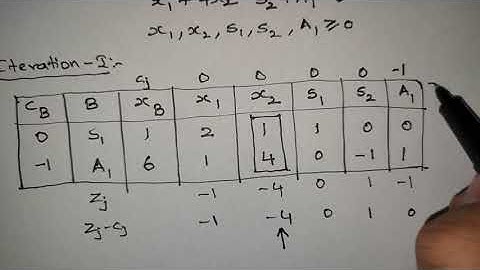 x₁ + 4x₂
x₁, x₂, S₁, S₂, A₁ ≥ 0
Iteration-I:-
Cj 0 0 0 0 -1
C_B B x_B x₁ x₂ S₁ S₂ A₁
0 S₁ 1 2 1 1 0 0
-1 A₁ 6 1 4 0 -1 1
Zj -1 -4 0 1 -1
Zj-Cj -1 -4 0 1 0